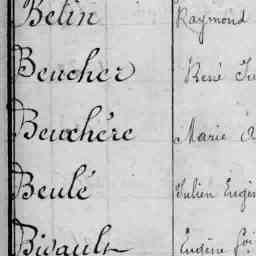 Belin Raymond
Beucher René
Beuchère Marie
Beulé Julien Eugèn
Bigault Eugène